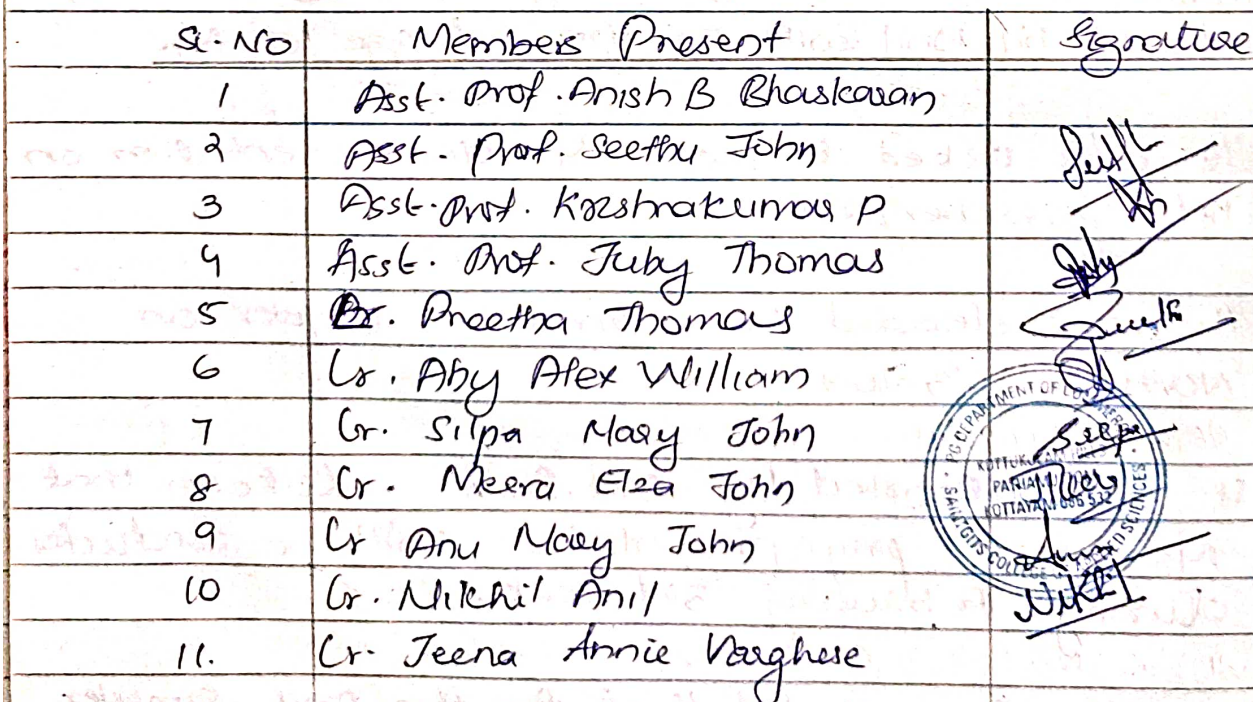 Sl. No Members Present Signature
1 Asst. Prof. Anish B Bhaskaran
2 Asst. Prof. Seethu John
3 Asst. Prof. Krishnakumar P
4 Asst. Prof. Juby Thomas
5 Dr. Preetha Thomas
6 Cr. Aby Alex William
7 Cr. Silpa Mary John
8 Cr. Meera Elza John
9 Cr Anu Mary John
10 Cr. Nikhil Anil Nikhil
11. Cr. Jeena Annie Varghese
PG DEPARTMENT OF COMMERCE
KOTTAYAM 686 532
SAINTGITS COLLEGE APPLIED SCIENCES